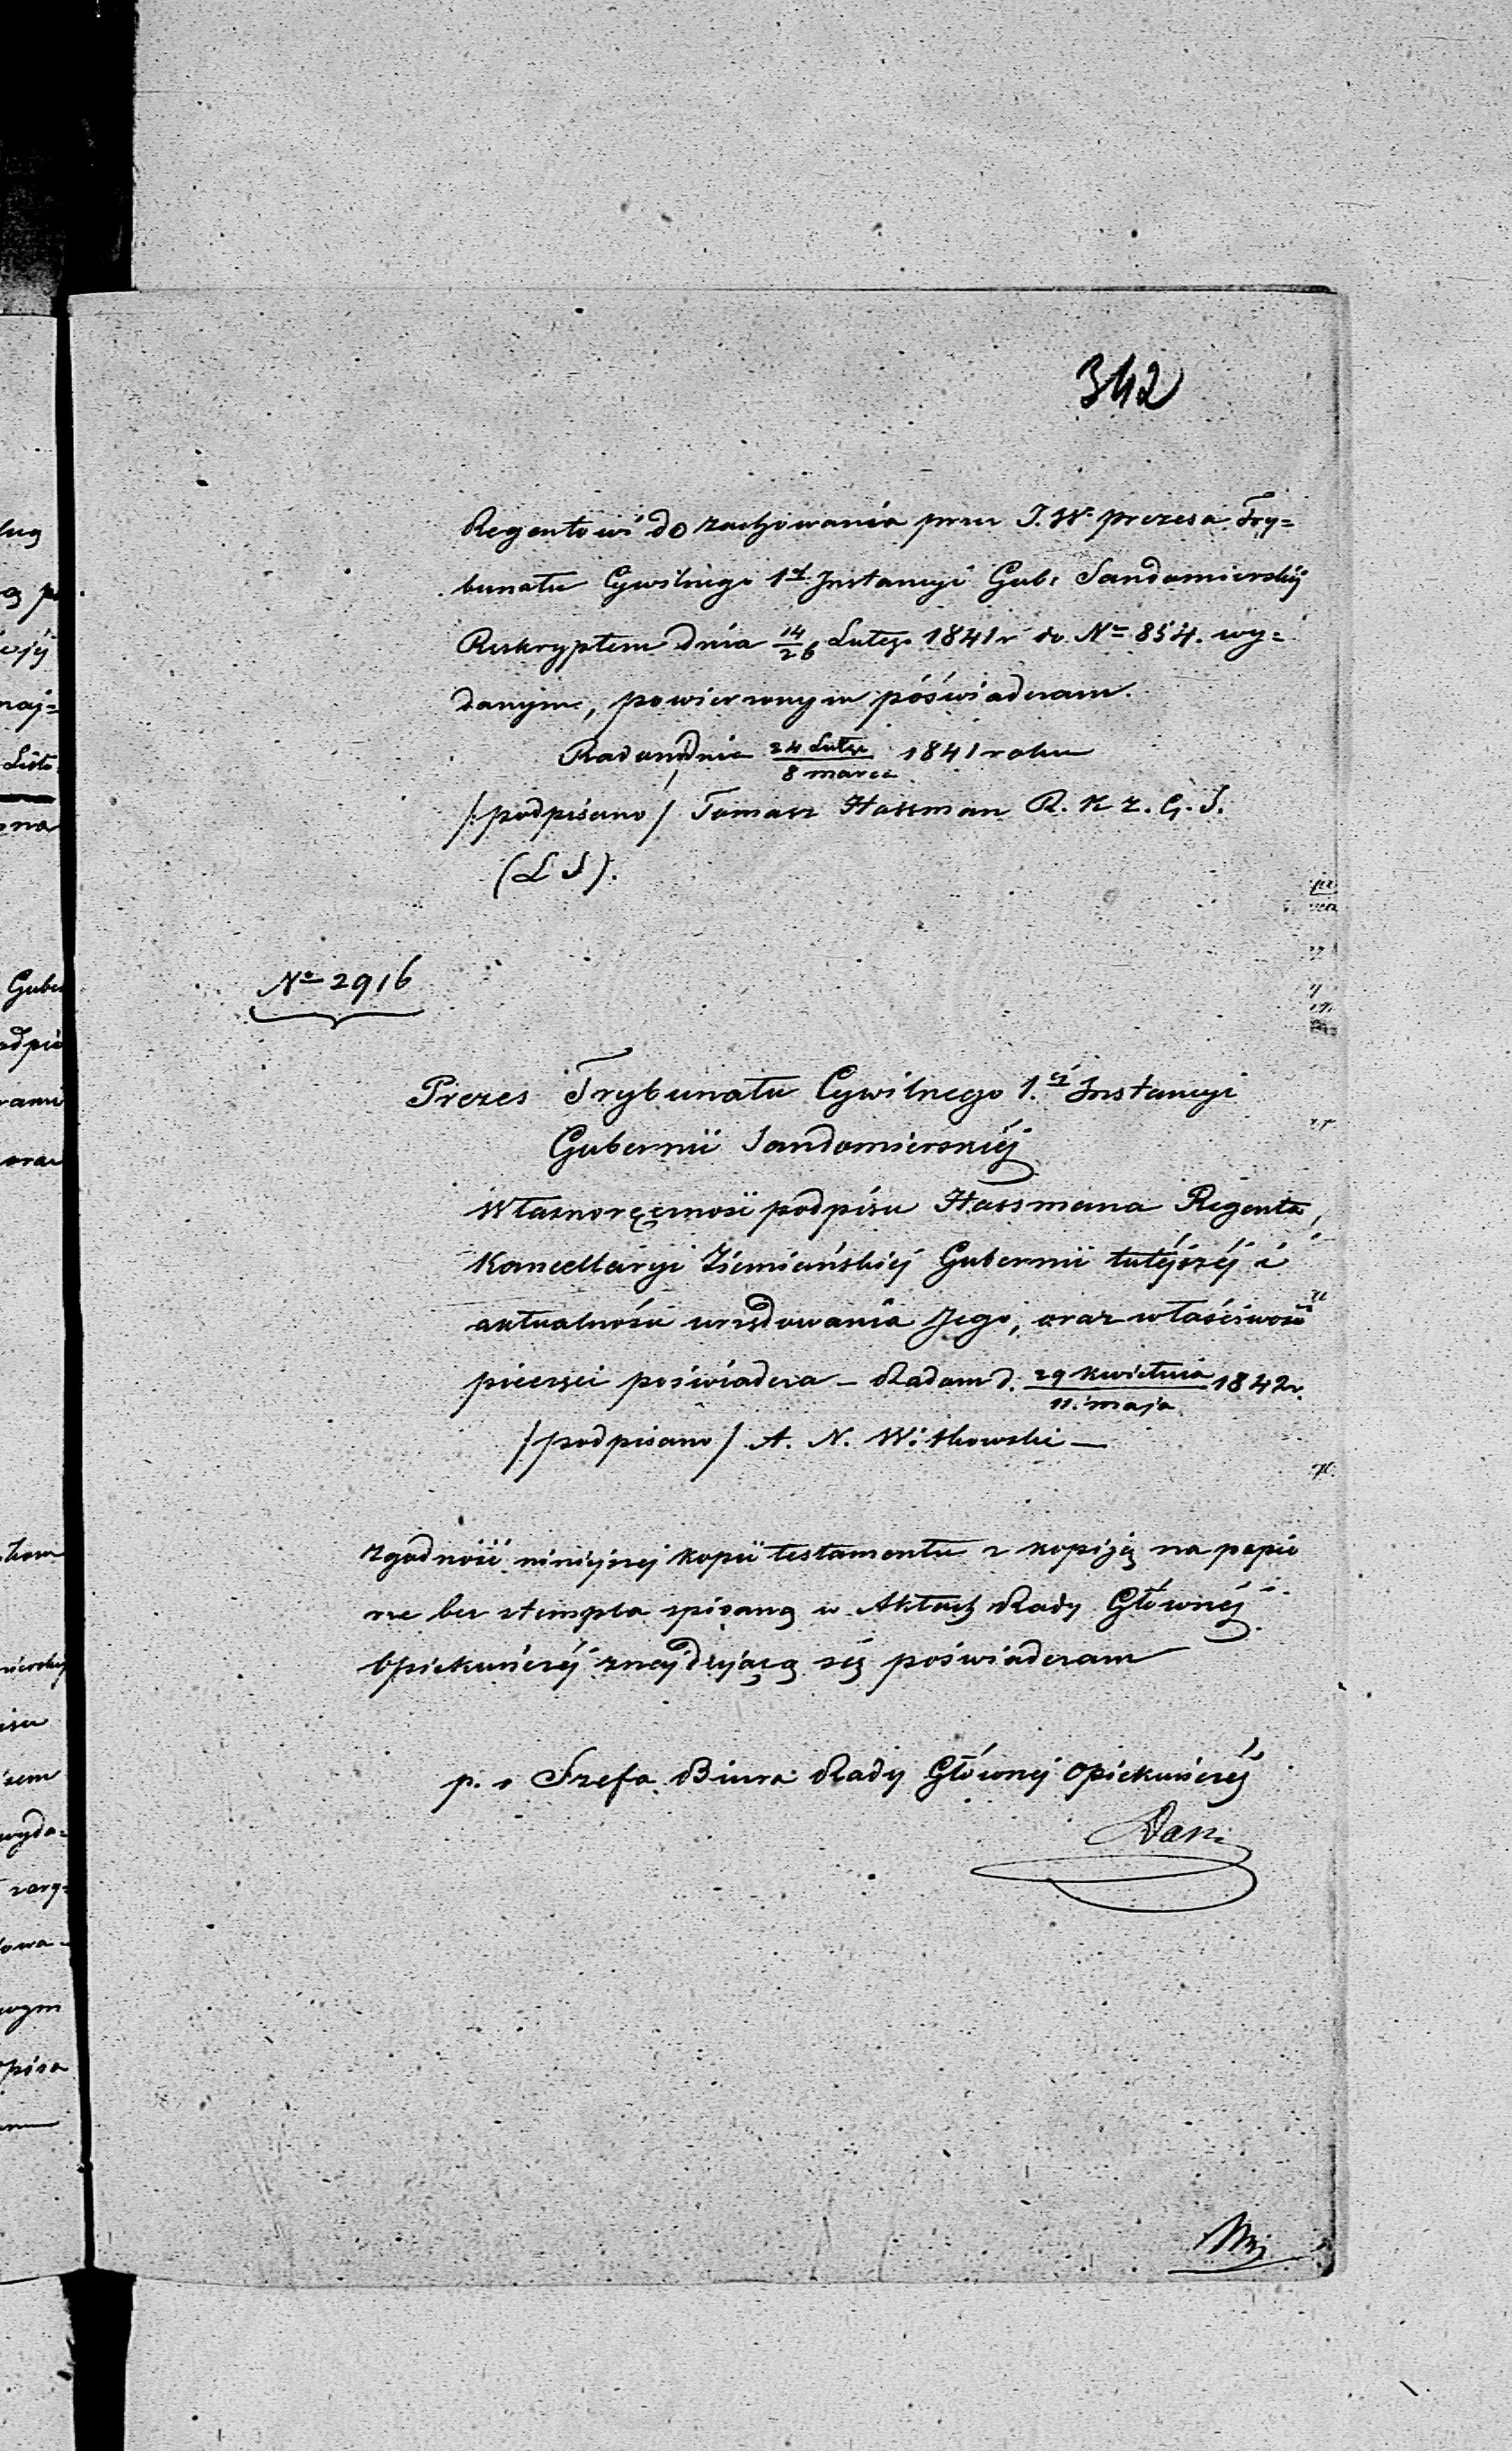 342
Regentowi do zachowania przez J. W. prezesa Try=
bunału Cywilnego 1éj Instancyi Gub: Sandomierskiéj
Reskryptem dnia 14/26 Lutego 1841 r do Nro 854. wy=
danym, powierzonym póświadczam.
Radom dnia 24 Lutego/8 marca 1841 roku
/podpisano/ Tomasz Hassman R. K. Z. G. S.
(L S).
No 2916
Prezes Trybunału Cywilnego 1.éj Instancyi
Gubernii Sandomierskiéj
Własnoręczność podpisu Hassmana Regenta,
Kancellaryi Ziemiańskiéj Gubernii tutéjszéj i
aktualność urzędowania Jego, oraz właściwość
pieczęci poświadcza – Radom d. 29 kwietnia/11. maja 1842 r.
/podpisano/ A. N. Witkowski —
Zgodność niniejszej kopii testamentu z kopiją na papie
rze bez stempla spisaną w Aktach Rady Głównéj
Opiekuńczéj znajdującą się poświadczam
p. o Szefa Biura Rady Głównej Opiekuńczéj